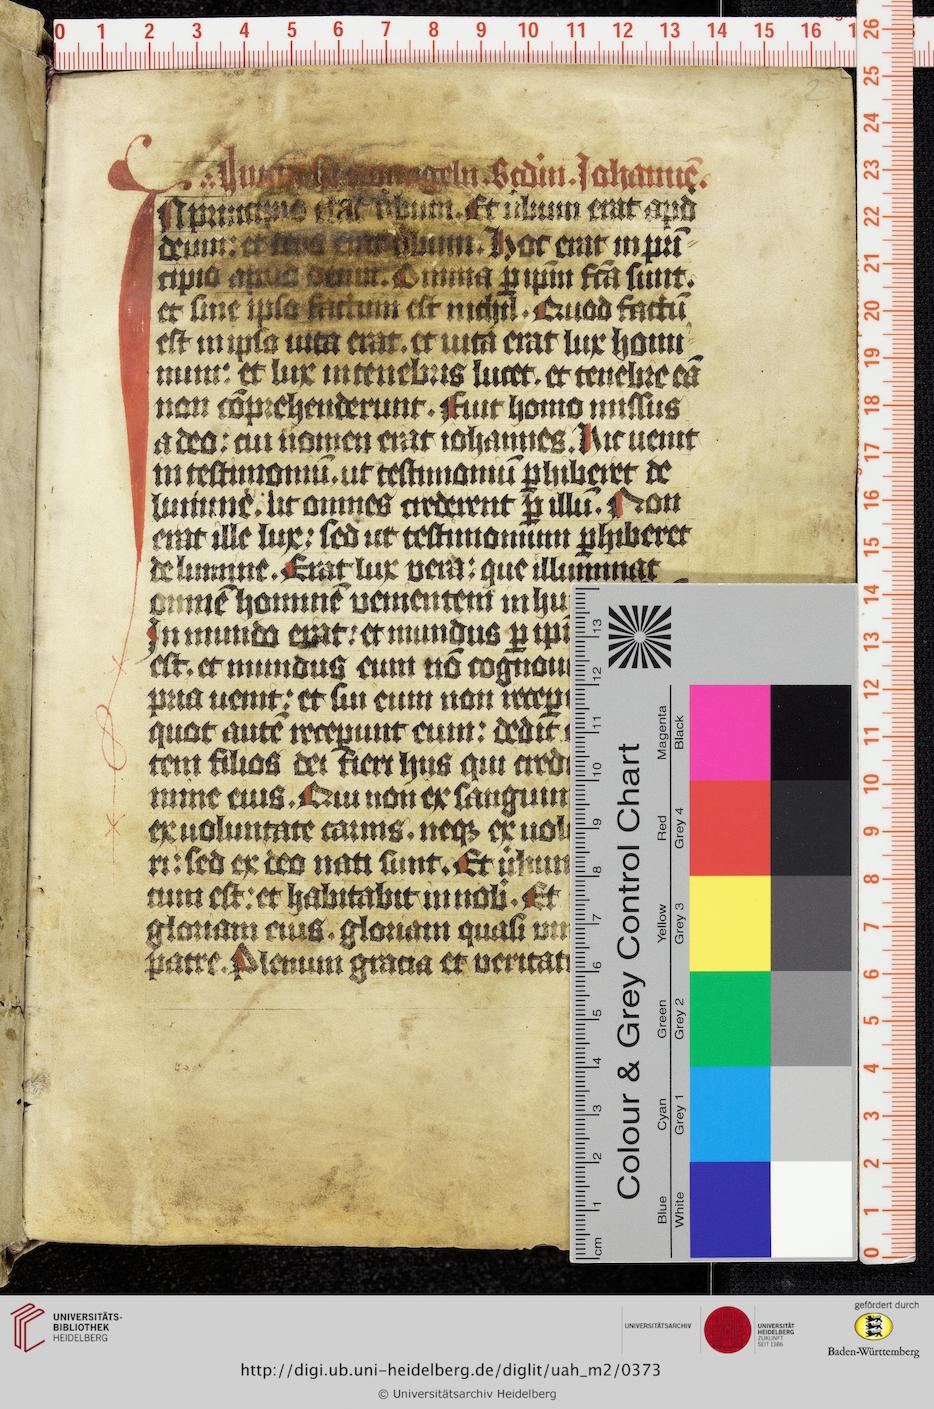 Inicium sci ewangelii. Scdm. Johannē.
In principio erat ubum. Et ubum erat apd
deum: et deus erat ubum. Hoc erat in pri
cipio apud deum. Omnia p ipm fca sunt.
et sine ipso factum est nichil. Quod factū
est in ipso uita erat. et uita erat lux homi
num: et lux in tenebris lucet. et tenebre eā
non cōprehenderunt. Fuit homo missus
a deo: cui nomen erat iohannes. Hic uenit
in testimoniū. ut testimoniū phiberet de
lumine. ut omnes crederent p illū. Non
erat ille lux: sed ut testimonium phiberet
de lumine. Erat lux vera: que illuminat
omnē hominē venientem in hu
In mundo erat: et mundus p ipm
est. et mundus eum nō cognou
pria uenit: et sui eum non recep
quot autē receperunt eum: dedit
tem filios dei fieri hiis qui cred
mine eius. Qui non ex sanguin
ex uoluntate carnis. neq; ex uol
ri: sed ex deo nati sunt. Et ubum
tum est: et habitabit in nob. Et
gloriam eius. gloriam quasi un
patre. Plenum gracia et veritat
2
0 1 2 3 4 5 6 7 8 9 10 11 12 13 14 15 16
26 25 24 23 22 21 20 19 18 17 16 15 14 13 12 11 10 9 8 7 6 5 4 3 2 1 0
Colour & Grey Control Chart
Blue Cyan Green Yellow Red Magenta
White Grey 1 Grey 2 Grey 3 Grey 4 Black
cm 1 2 3 4 5 6 7 8 9 10 11 12 13
UNIVERSITÄTS-
BIBLIOTHEK
HEIDELBERG
UNIVERSITÄTSARCHIV
UNIVERSITÄT
HEIDELBERG
ZUKUNFT
SEIT 1386
gefördert durch
Baden-Württemberg
http://digi.ub.uni-heidelberg.de/diglit/uah_m2/0373
© Universitätsarchiv Heidelberg